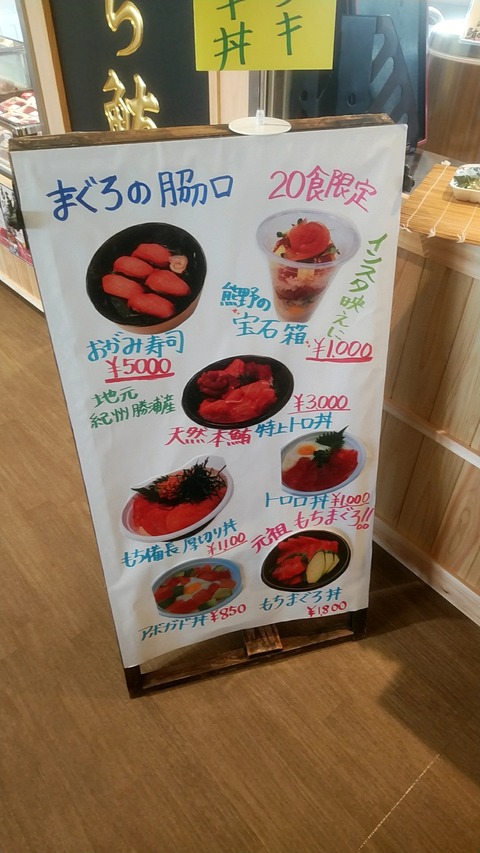 ち鮪
キ
キ丼
まぐろの脇口
20食限定
インスタ映え
熊野の
宝石箱
¥1,000
おがみ寿司
¥5000
地元
紀州勝浦産
¥3,000
天然本鮪特上トロ丼
トロロ丼¥1,000
もち備長厚切り丼
¥1,100
元祖もちまぐろ!!
アボガド丼¥850
もちまぐろ丼
¥1,800